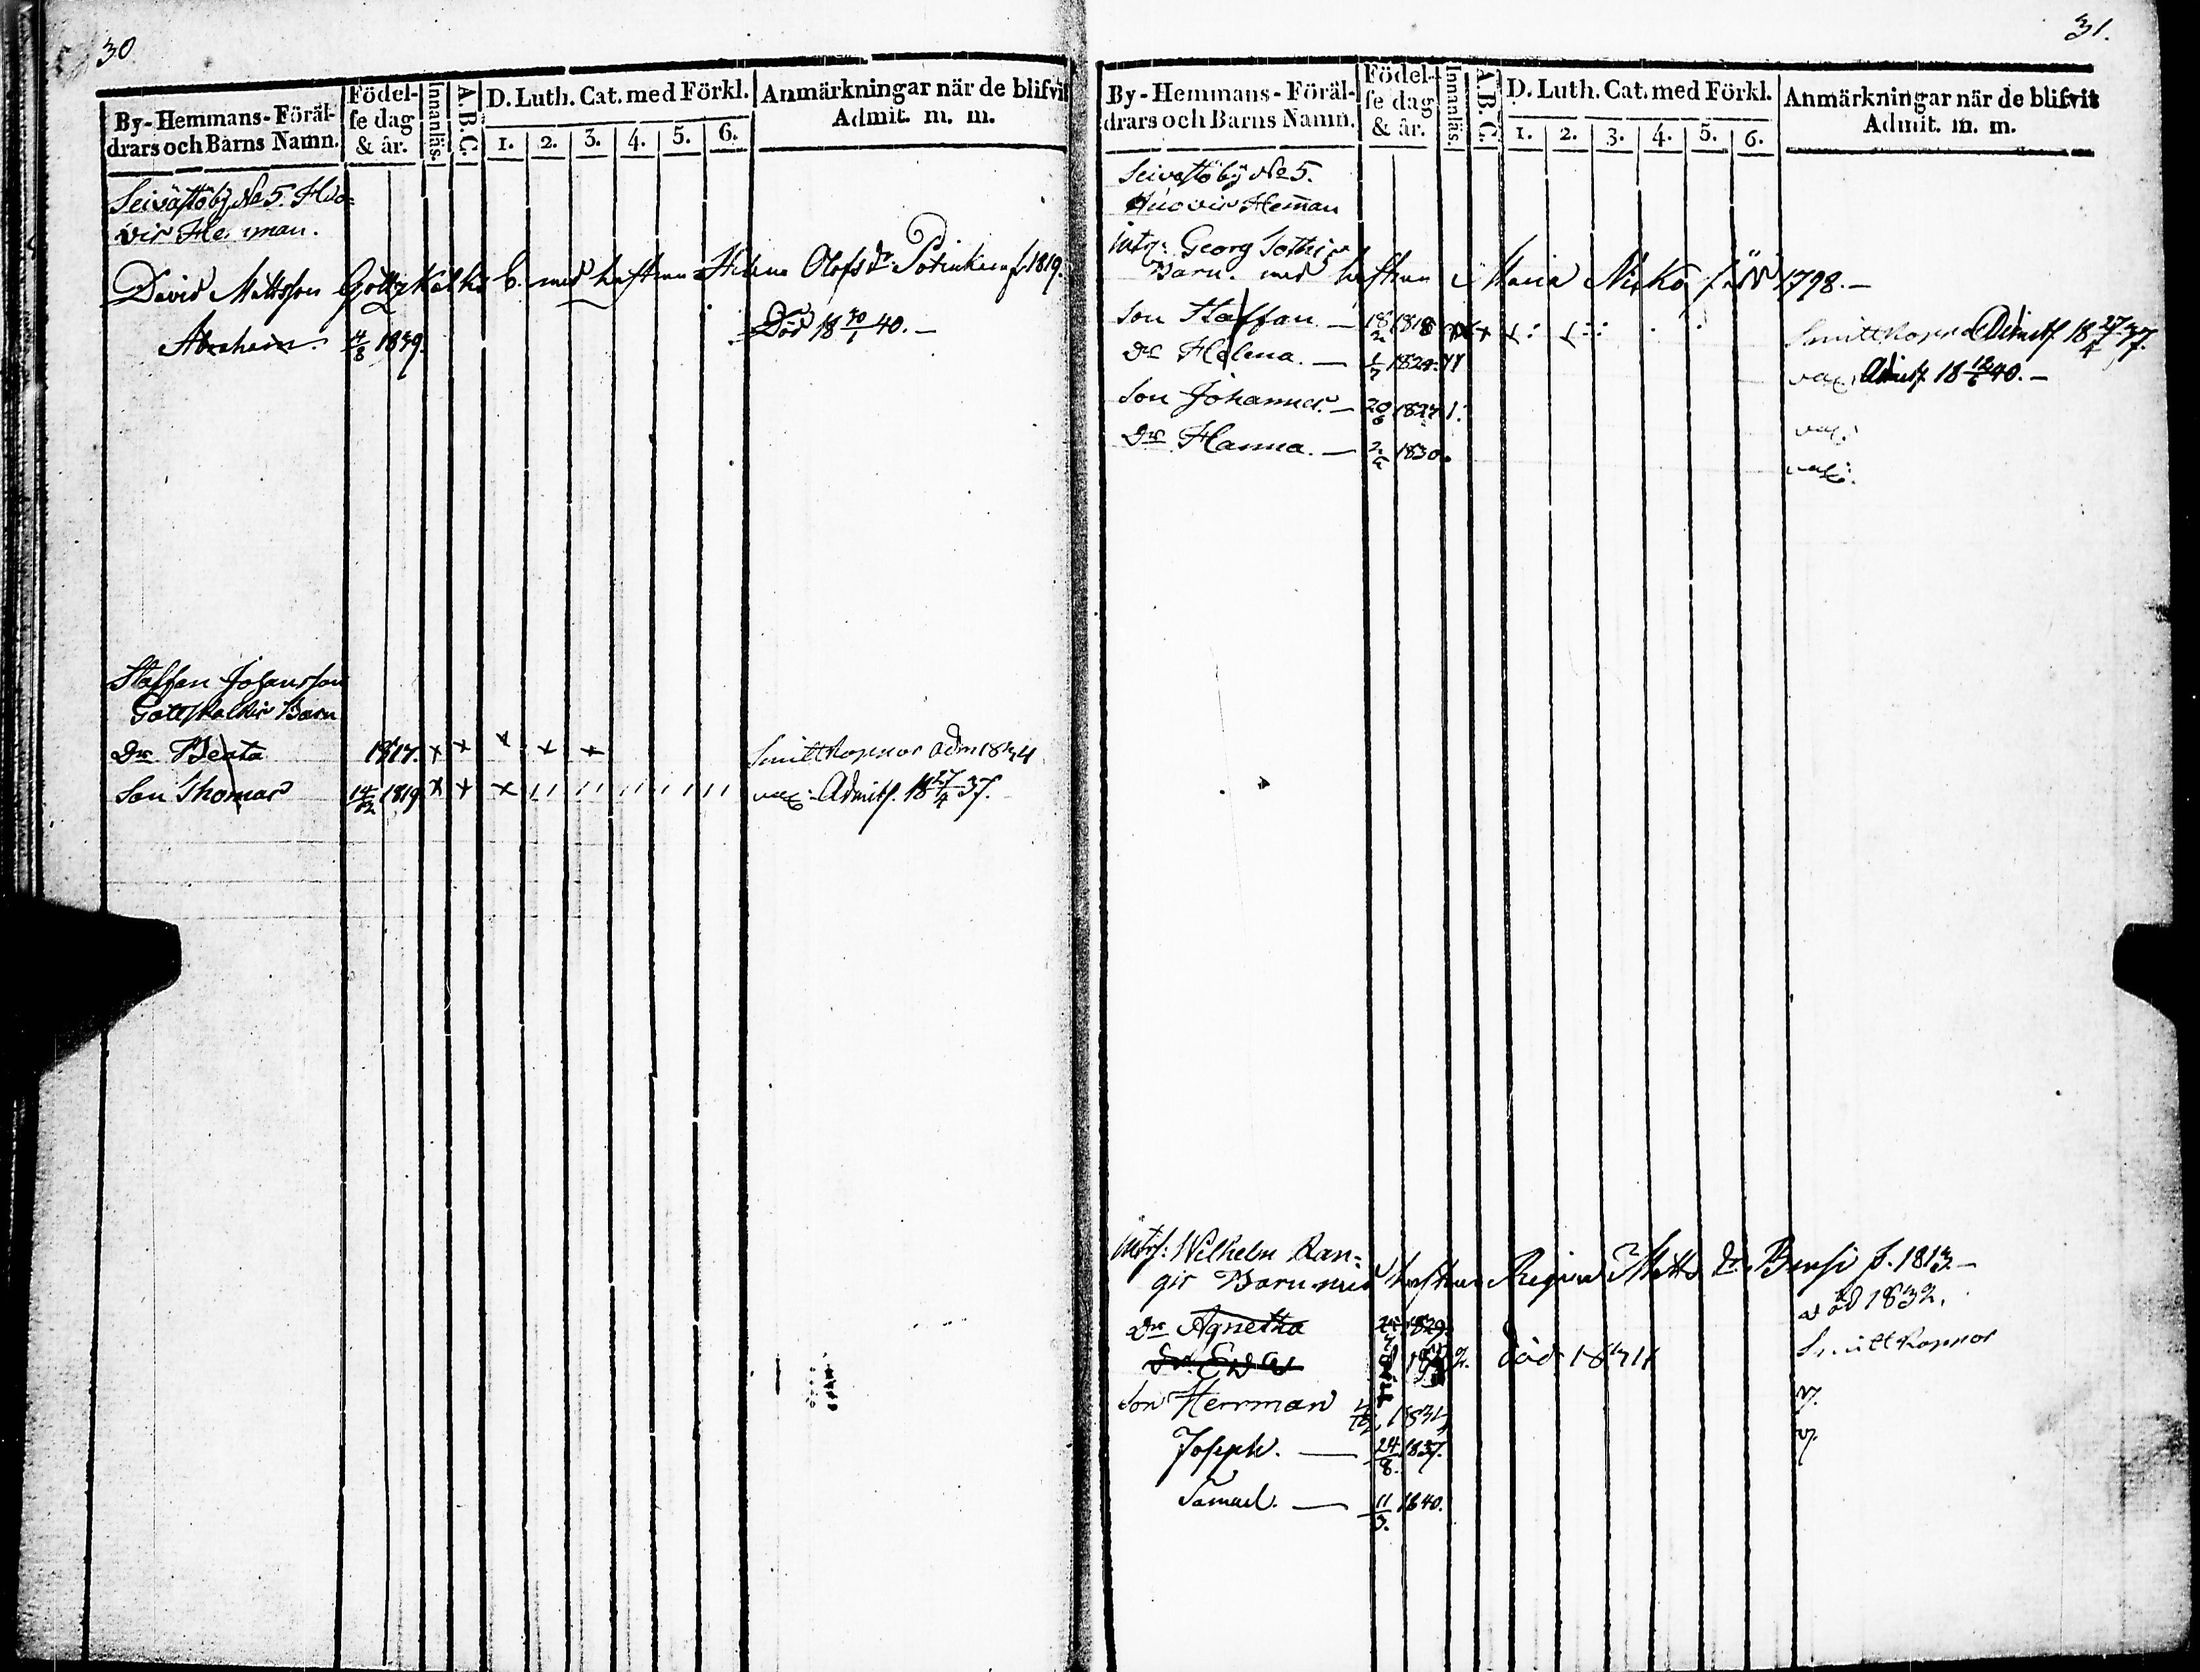 30
By-Hemmans-Föräl-
drars och Barns Namn.
Födel-
se dag
& år.
Innanläs.
A.B.C.
D. Luth. Cat. med Förkl.
1. 2. 3. 4. 5. 6.
Anmärkningar när de blifvit
Admit. m. m.
Seivästöby No 5. Huo-
vis Heman.
David Mattsson Gottskalkis b. med hustrun Helena Olofs dr f. 1819.
Abraham. 4/8 1839. Död 18 30/1 40. —
Staffan Johansson
Gottskalkis Barn
Dr Beata 1817. x x x x x Smittkoppor adm 1834
Son Thomas 14/12 1819. x x x vac: Admits. 18 27/4 37.
31.
By-Hemmans-Föräl-
drars och Barns Namn.
Födel-
se dag
& år.
Innanläs.
A.B.C.
D. Luth. Cat. med Förkl.
1. 2. 3. 4. 5. 6.
Anmärkningar när de blifvit
Admit. m. m.
Seivästöby No 5.
Huovis Heman
Georg
Barn. med hustrun Maria 1798. —
Son Staffan. — 18/2 1818 Smittkoppor Admits. 18 27/4 37.
Dr Helena. — 1/7 1824. vac: Admits. 18 12/6 40. —
Son Johannes. — 20/6 1827 vac:
Dr Hanna. — 1830. vac:
Wilhelm Kan-
gis Barn med hustrun Regina Matts dr f. 1813. —
Dr Agnetha 1829. död 1832.
Dr Eva död 1834 Smittkoppor
Son Herrman v.
Joseph. — 24/8. 1837. v.
Samuel. — 11/3. 1840.